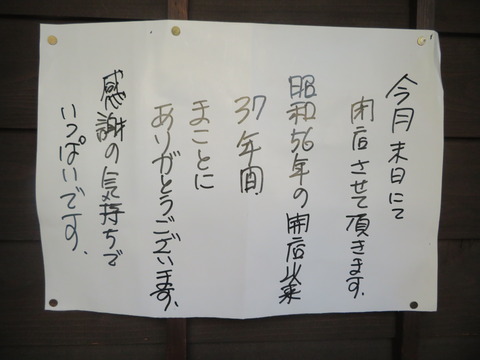 今月末日にて
閉店させて頂きます。
昭和56年の開店以来
37年間
まことに
ありがとうございます。
感謝の気持ちで
いっぱいです。